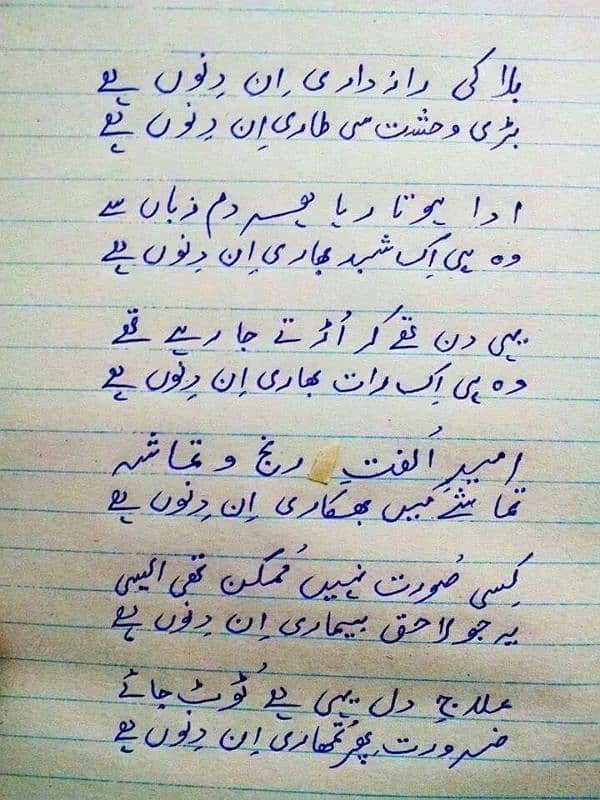 بلا کی رازداری اِن دِنوں ہے
بڑی وحشت سی طاری اِن دِنوں ہے
ادا ہوتا رہا ہر دم زباں سے
وہ ہی اِک شبد بھاری اِن دِنوں ہے
یہی دن تھے کہ اُڑتے جا رہے تھے
وہ ہی اِک رات بھاری اِن دِنوں ہے
امیدِ اُلفتِ رنج و تماشہ
تماشے میں بھکاری اِن دِنوں ہے
کِسی صُورت نہیں مُمکن تھی ایسی
یہ جو لاحق بیماری اِن دِنوں ہے
علاجِ دل یہی ہے ٹُوٹ جائے
ضرورت پِھر تُمھاری اِن دِنوں ہے